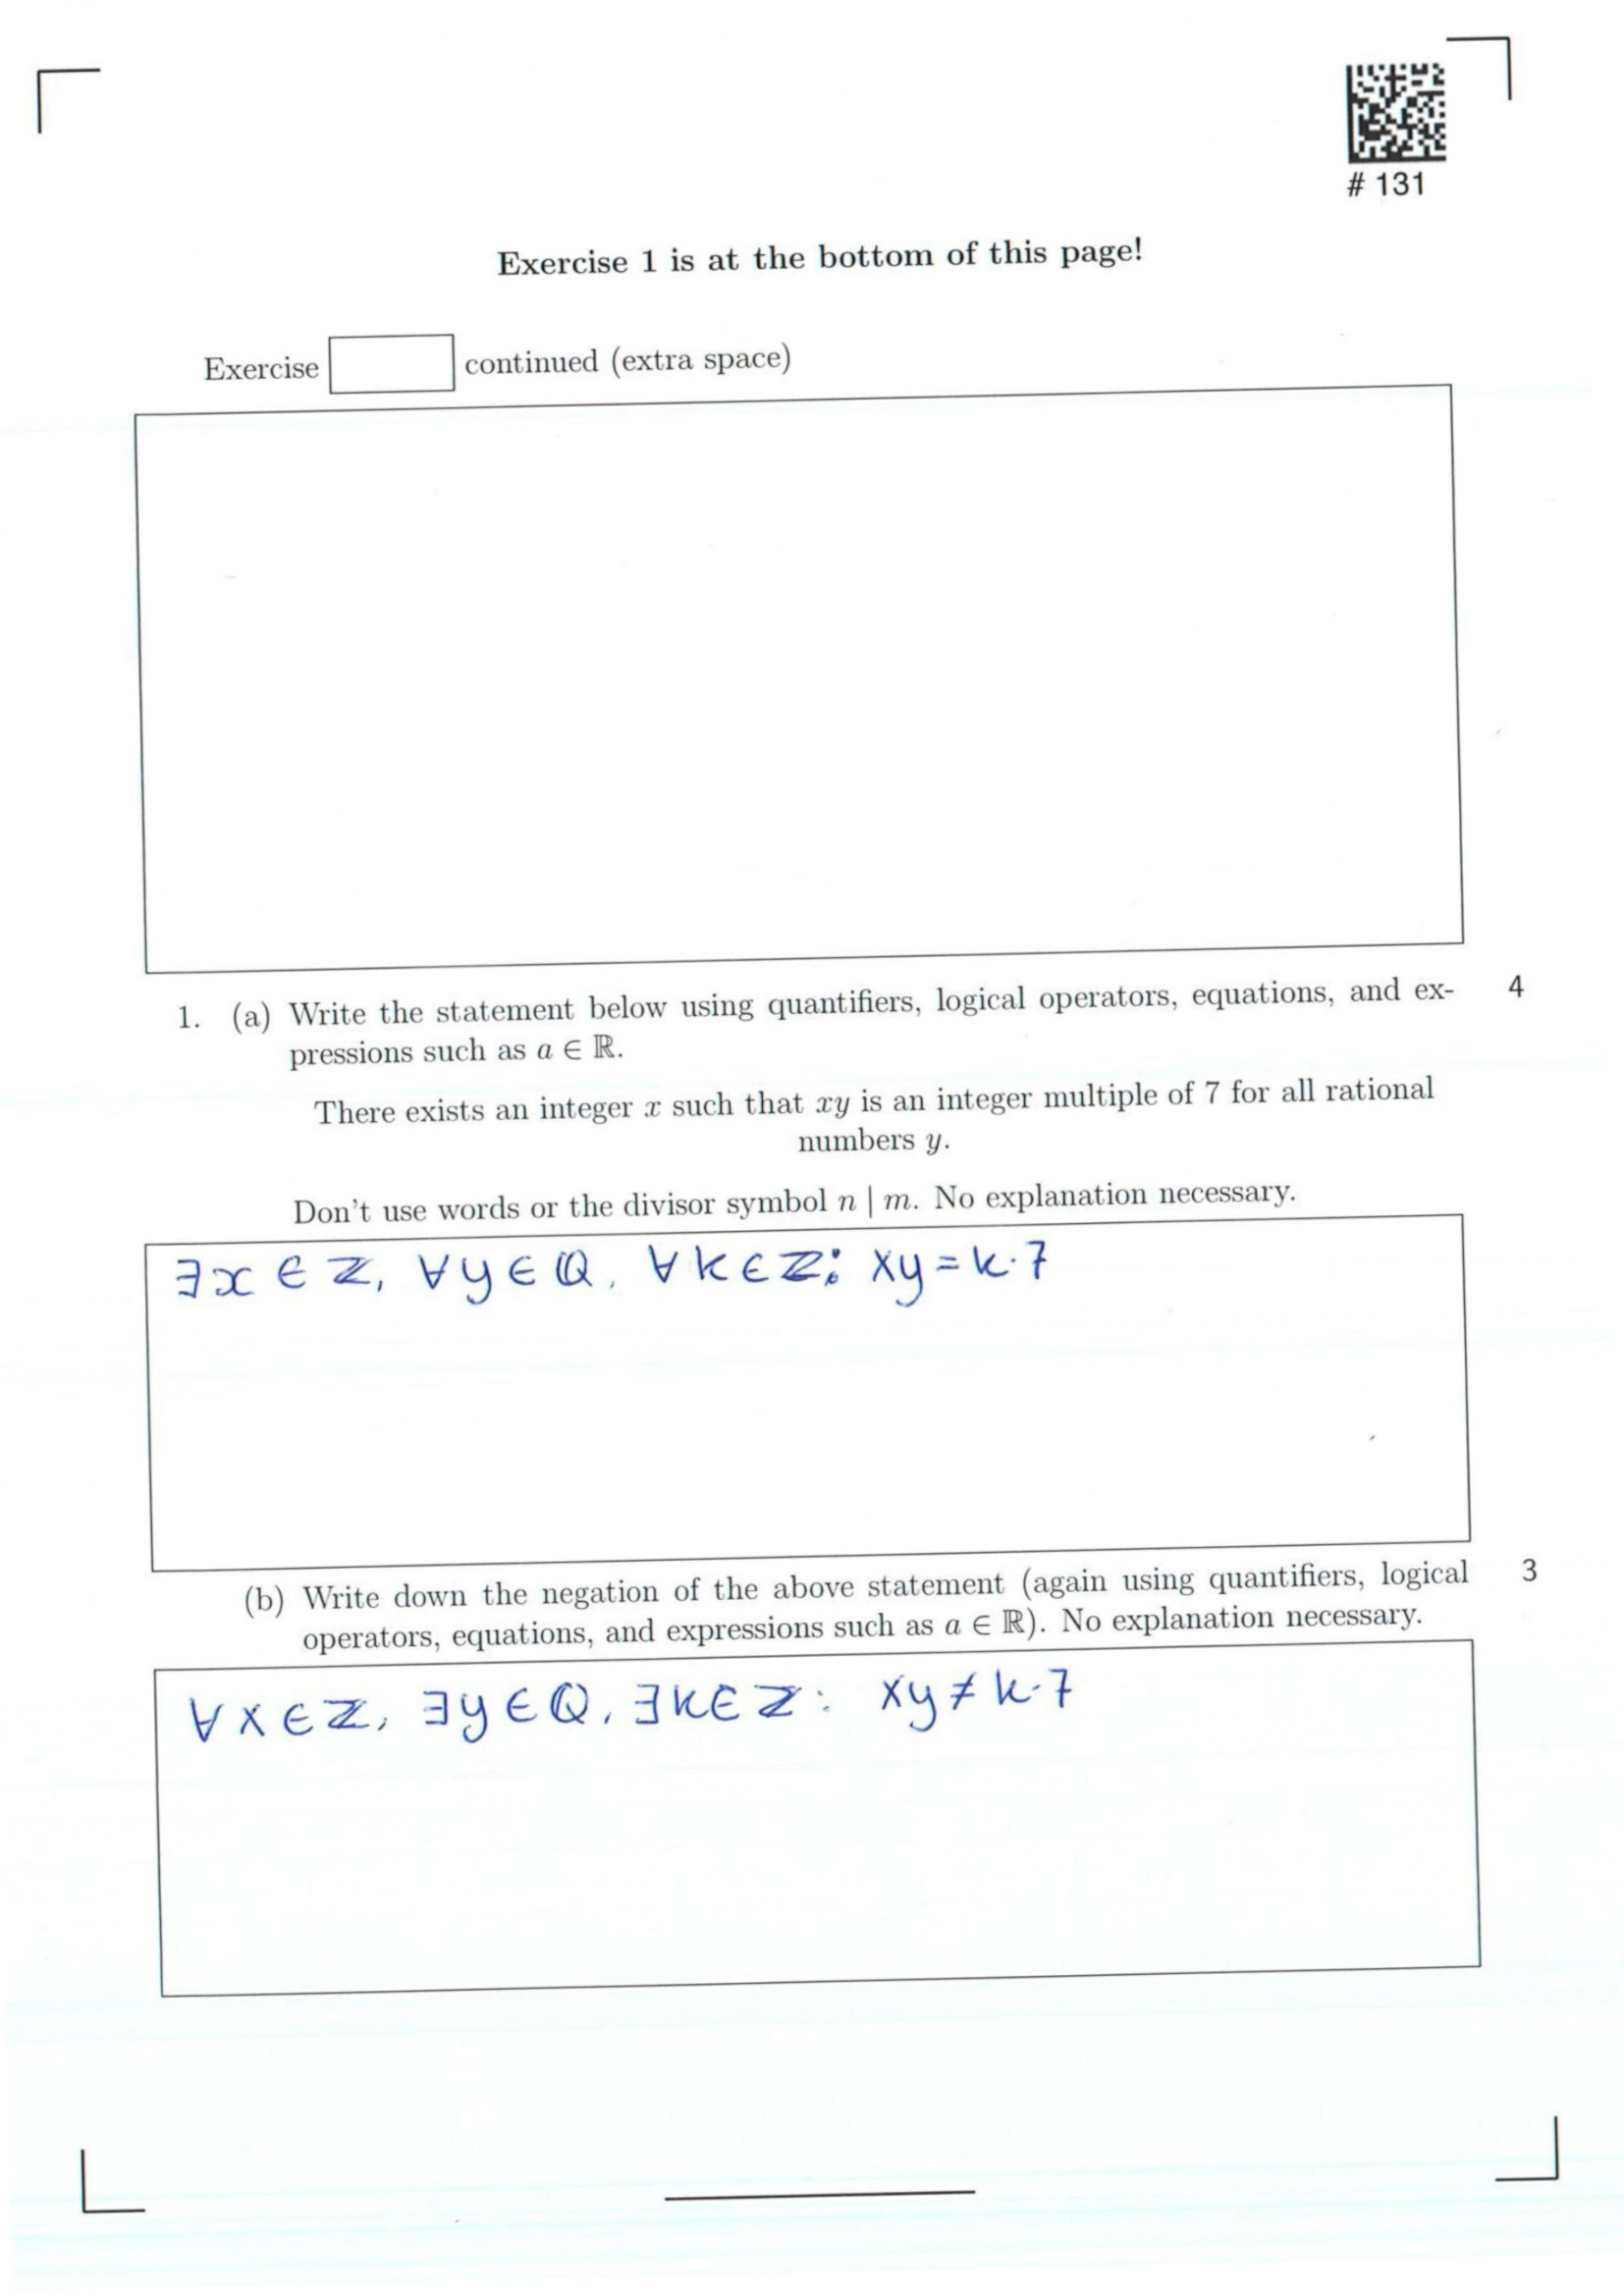 # 131
Exercise 1 is at the bottom of this page!
Exercise continued (extra space)
1. (a) Write the statement below using quantifiers, logical operators, equations, and ex- 4
pressions such as a ∈ ℝ.
There exists an integer x such that xy is an integer multiple of 7 for all rational
numbers y.
Don't use words or the divisor symbol n | m. No explanation necessary.
∃x ∈ ℤ, ∀y ∈ ℚ, ∀k ∈ ℤ: xy = k·7
(b) Write down the negation of the above statement (again using quantifiers, logical 3
operators, equations, and expressions such as a ∈ ℝ). No explanation necessary.
∀x ∈ ℤ, ∃y ∈ ℚ, ∃k ∈ ℤ: xy ≠ k·7